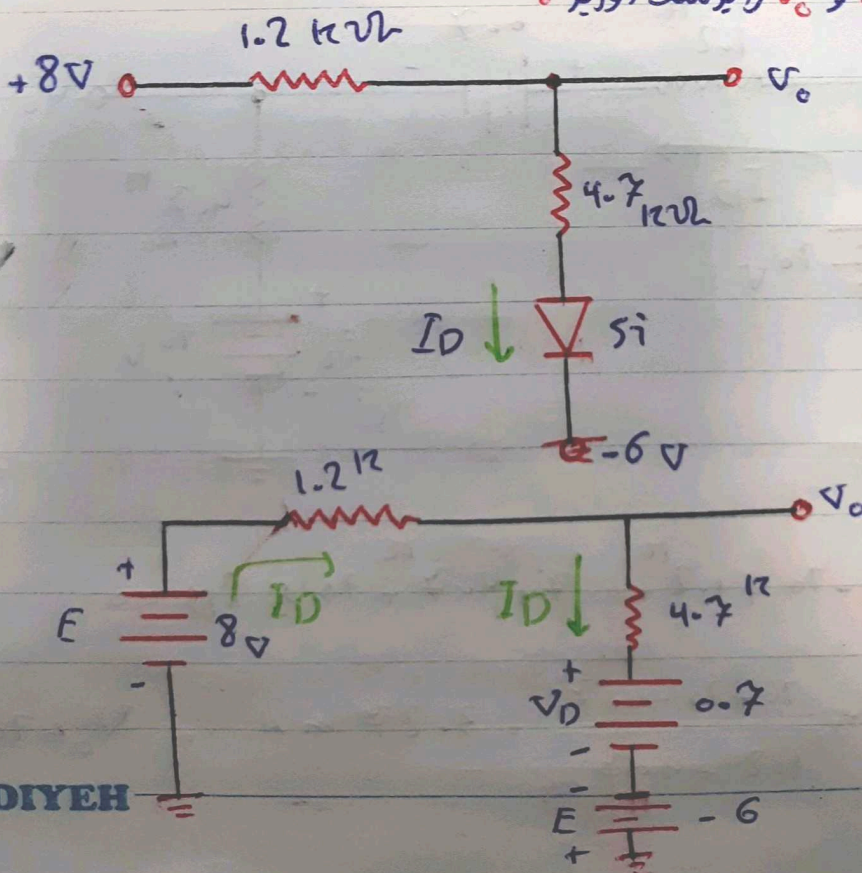 1.2 kΩ
+8V
V₀
4.7 kΩ
I_D
Si
-6 V
1.2 k
V₀
+
E
8V
-
I_D
I_D
4.7 k
+
V_D
0.7
-
-
E
- 6
+
DIYEH